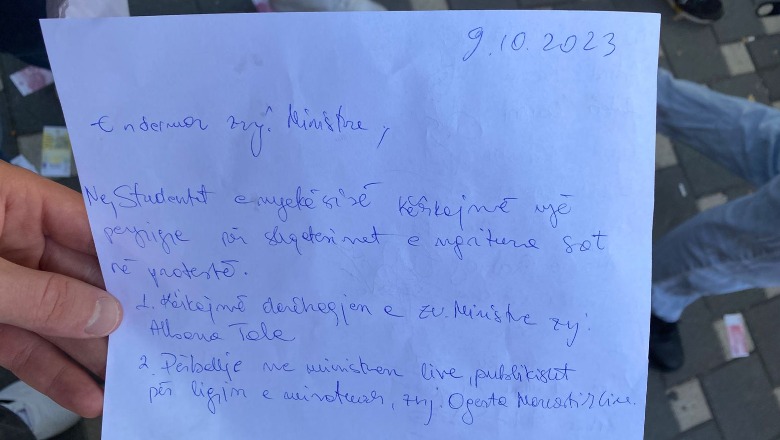 9.10.2023
E ndermar znj. Ministre,
Ne, Studentët e mjekësisë kërkojmë një
përgjigje për shqetësimet e ngritura sot
në protestë.
1. Kërkojmë dorëheqjen e zv. Ministre znj.
Albana Tole
2. Përballje me ministren live, publikisht
për ligjin e miratuar, znj. Ogerta